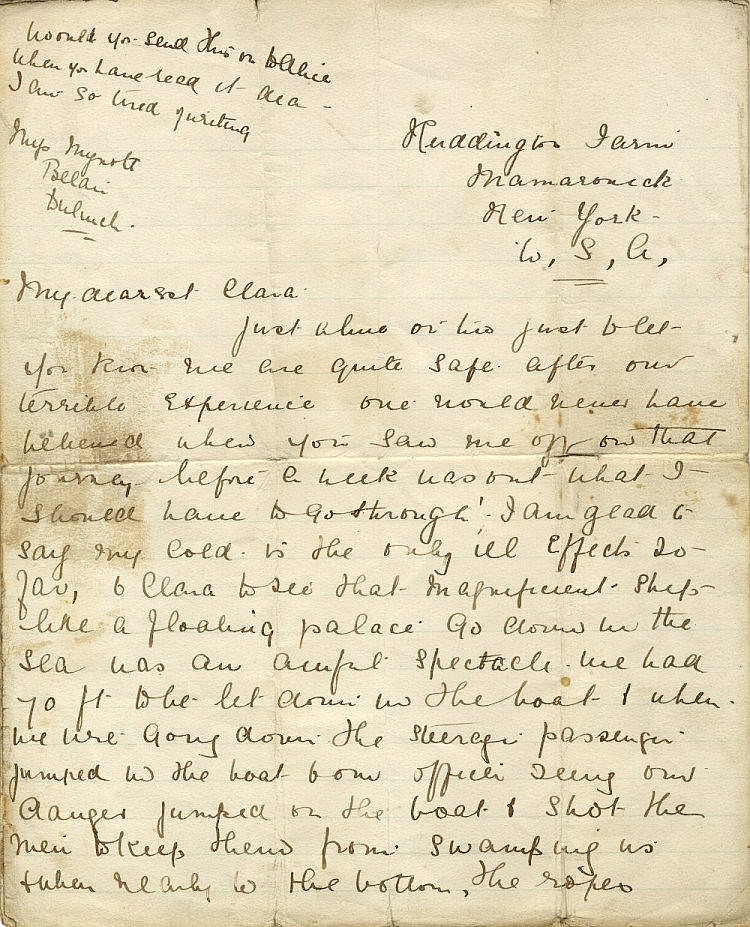 would you send this on to Alice
when you have read it dea -
I am so tired of writing
Miss Mynott
Belair
Dulwich.
Huddington Farm
Mamaroneck
New York -
U, S, A,
My dearest Clara
Just a line or two just to let
you know we are quite safe after our
terrible experience one would never have
believed when you saw me off on that
journey before a week was out what I
should have to go through! I am glad to
say my cold is the only ill effects so
far, O Clara to see that magnificient ship
like a floating palace go down in the
sea was an awful spectacle. we had
70 ft to be let down in the boat & when
we were going down the steerage passenger
jumped in the boat & our officer seeing our
danger jumped on the boat & shot the
men to keep them from swamping us
when nearly to the bottom, the ropes